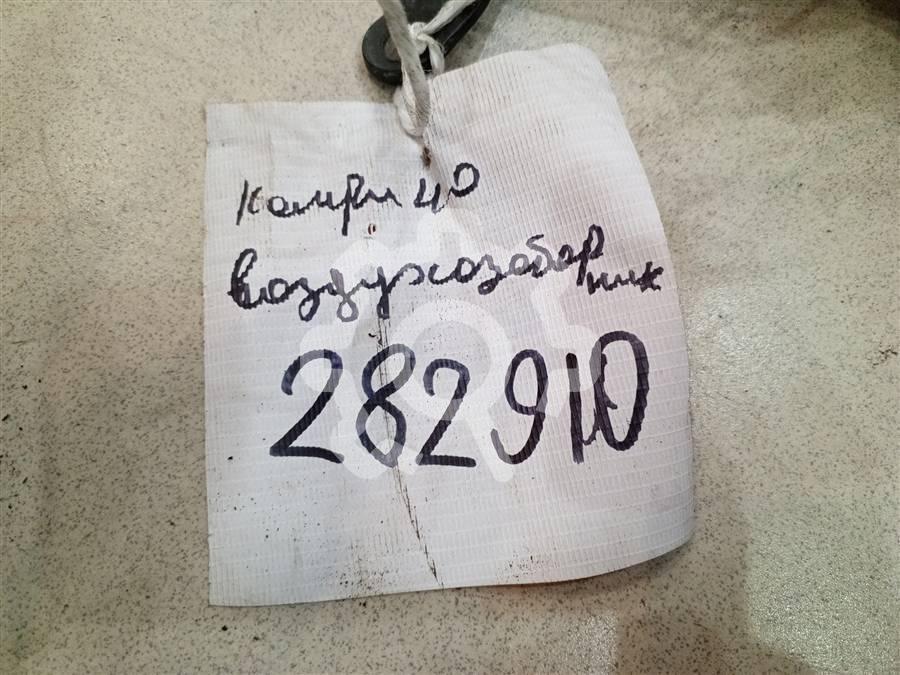 Камри 40
Воздухозаборник
282910